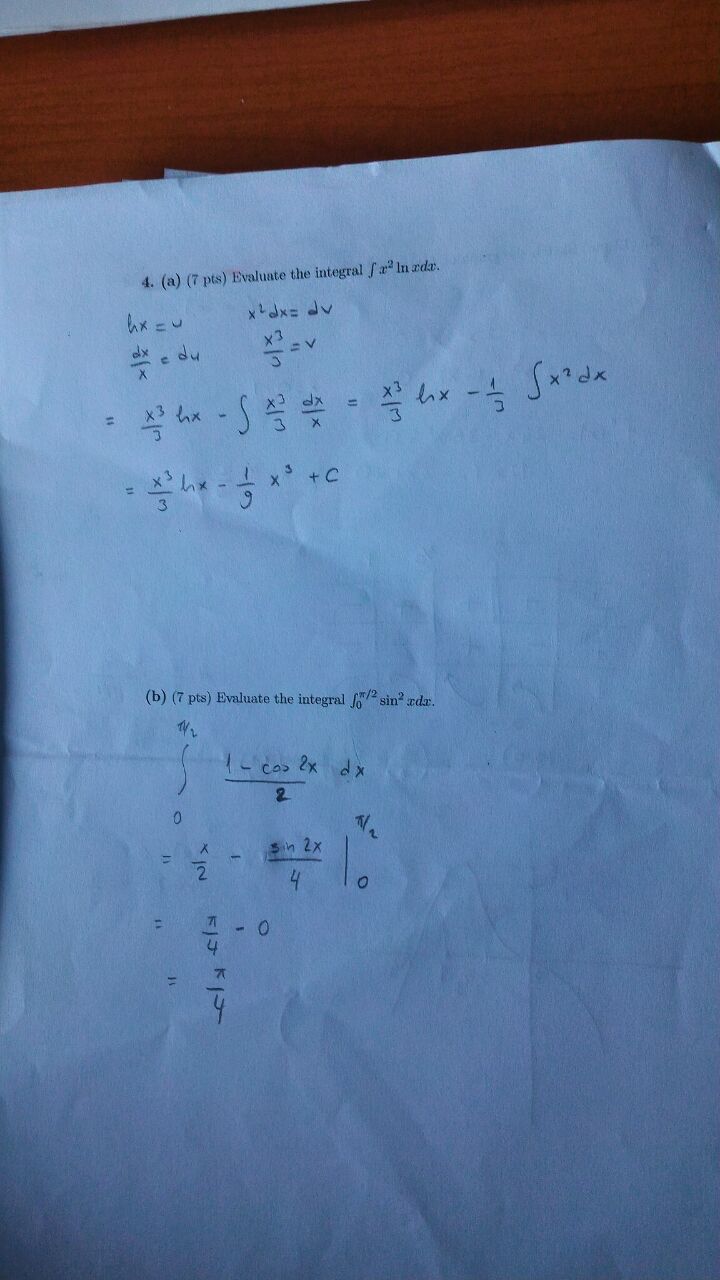 4. (a) (7 pts) Evaluate the integral ∫ x² ln xdx.
lnx = u    x² dx = dv
dx/x = du    x³/3 = v
= x³/3 lnx - ∫ x³/3 dx/x = x³/3 lnx - 1/3 ∫ x² dx
= x³/3 lnx - 1/9 x³ + C
(b) (7 pts) Evaluate the integral ∫₀^{π/2} sin² xdx.
∫₀^{π/2} (1 - cos 2x)/2 dx
= x/2 - sin 2x/4 |₀^{π/2}
= π/4 - 0
= π/4